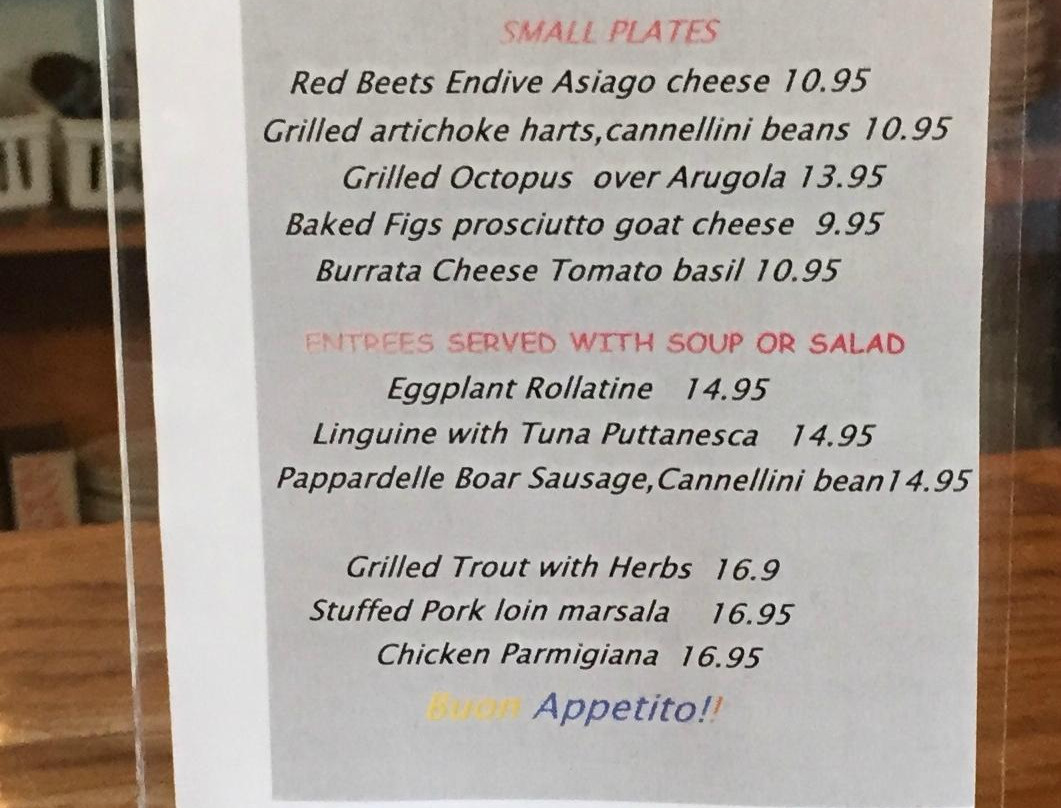 SMALL PLATES
Red Beets Endive Asiago cheese 10.95
Grilled artichoke harts,cannellini beans 10.95
Grilled Octopus over Arugola 13.95
Baked Figs prosciutto goat cheese 9.95
Burrata Cheese Tomato basil 10.95
ENTREES SERVED WITH SOUP OR SALAD
Eggplant Rollatine 14.95
Linguine with Tuna Puttanesca 14.95
Pappardelle Boar Sausage,Cannellini bean14.95
Grilled Trout with Herbs 16.9
Stuffed Pork loin marsala 16.95
Chicken Parmigiana 16.95
Buon Appetito!!